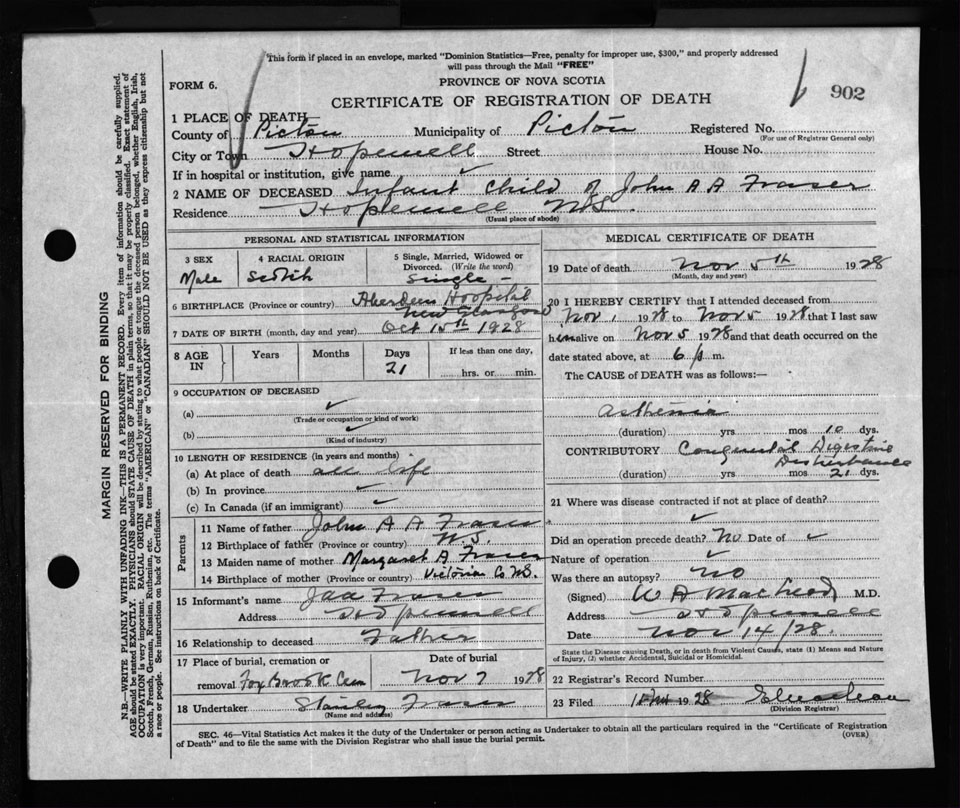 This form if placed in an envelope, marked "Dominion Statistics—Free, penalty for improper use, $300," and properly addressed
will pass through the Mail "FREE"
FORM 6.
PROVINCE OF NOVA SCOTIA
902
CERTIFICATE OF REGISTRATION OF DEATH
1 PLACE OF DEATH
County of Pictou Municipality of Pictou Registered No.
(For use of Registrar General only)
City or Town Hopewell Street House No.
If in hospital or institution, give name
2 NAME OF DECEASED Infant Child of John A A Fraser
Residence Hopewell N.S.
(Usual place of abode)
PERSONAL AND STATISTICAL INFORMATION
3 SEX 4 RACIAL ORIGIN 5 Single, Married, Widowed or
Divorced. (Write the word)
Male Scotch Single
6 BIRTHPLACE (Province or country) Aberdeen Hospital
New Glasgow
7 DATE OF BIRTH (month, day and year) Oct 15th 1928
8 AGE IN Years Months Days If less than one day,
21 hrs. or min.
9 OCCUPATION OF DECEASED
(a)
(Trade or occupation or kind of work)
(b)
(Kind of industry)
10 LENGTH OF RESIDENCE (in years and months)
(a) At place of death all life
(b) In province
(c) In Canada (if an immigrant)
Parents
11 Name of father John A A Fraser
12 Birthplace of father (Province or country) N.S.
13 Maiden name of mother Margaret A Fraser
14 Birthplace of mother (Province or country) Victoria Co N.S.
15 Informant's name Fraser
Address Hopewell
16 Relationship to deceased Father
17 Place of burial, cremation or Date of burial
removal Fox Brook Cem Nov 7 1928
18 Undertaker Stanley Fraser
(Name and address)
MEDICAL CERTIFICATE OF DEATH
19 Date of death Nov 5th 1928
(Month, day and year)
20 I HEREBY CERTIFY that I attended deceased from
Nov 1 1928 to Nov 5 1928 that I last saw
him alive on Nov 5 1928 and that death occurred on the
date stated above, at 6 p m.
The CAUSE of DEATH was as follows:—
Asthenia
(duration) yrs mos 10 dys.
CONTRIBUTORY Congenital Digestive
Disturbance
(duration) yrs mos 21 dys.
21 Where was disease contracted if not at place of death?
Did an operation precede death? No Date of
Nature of operation
Was there an autopsy? no
(Signed) W A MacLeod M.D.
Address Hopewell
Date Nov 14/28.
State the Disease causing Death, or in death from Violent Causes, state (1) Means and Nature
of Injury, (2) whether Accidental, Suicidal or Homicidal.
22 Registrar's Record Number
23 Filed 1928
(Division Registrar)
SEC. 46—Vital Statistics Act makes it the duty of the Undertaker or person acting as Undertaker to obtain all the particulars required in the "Certificate of Registration
of Death" and to file the same with the Division Registrar who shall issue the burial permit.
(OVER)
MARGIN RESERVED FOR BINDING
N.B.—WRITE PLAINLY WITH UNFADING INK—THIS IS A PERMANENT RECORD. Every item of information should be carefully supplied.
AGE should be stated EXACTLY. PHYSICIANS should STATE CAUSE OF DEATH in plain terms, so that it may be properly classified. Exact statement of
OCCUPATION is very important. RACIAL ORIGIN will be described by stating to what people or tongue the deceased person belonged, whether English, Irish,
Scotch, French, German, Russian, Ruthenian, etc. The terms "AMERICAN" or "CANADIAN" SHOULD NOT BE USED as they express citizenship but not
a race or people. See instructions on back of Certificate.